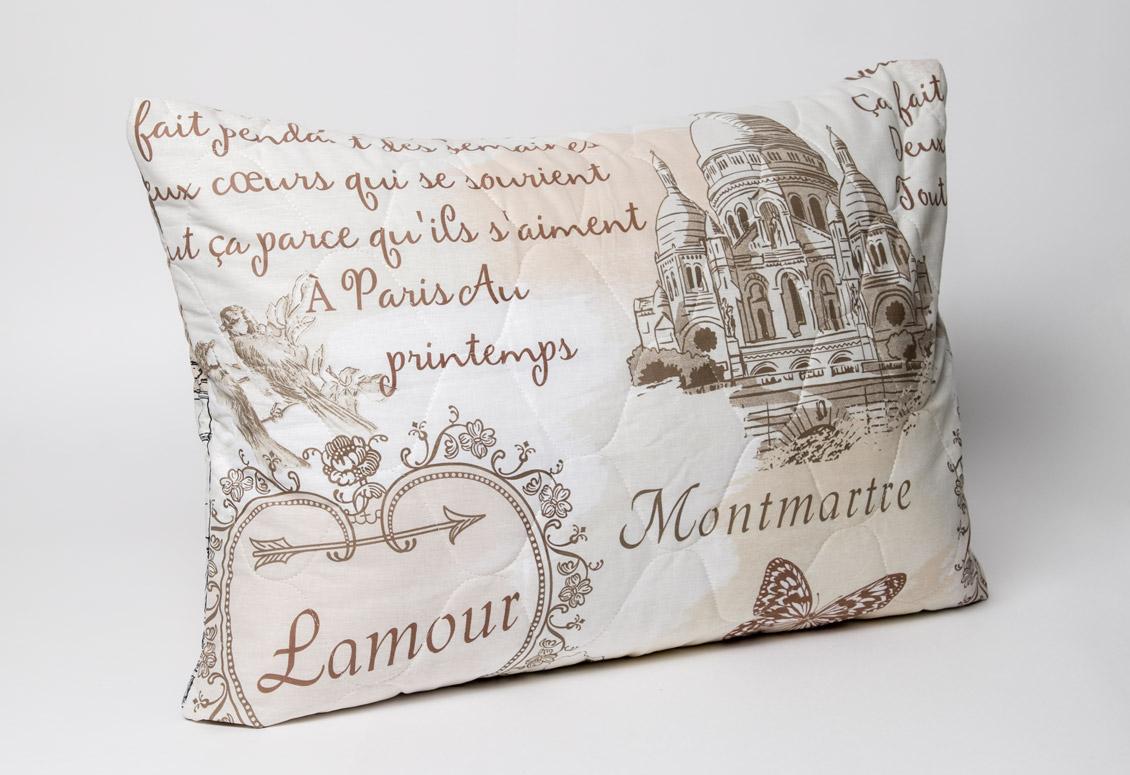 fait pendant des semaines
eux cœurs qui se sourient
ut ça parce qu'ils s'aiment
À Paris Au
printemps
Ça fait
Deux
Tout
Montmartre
Lamour